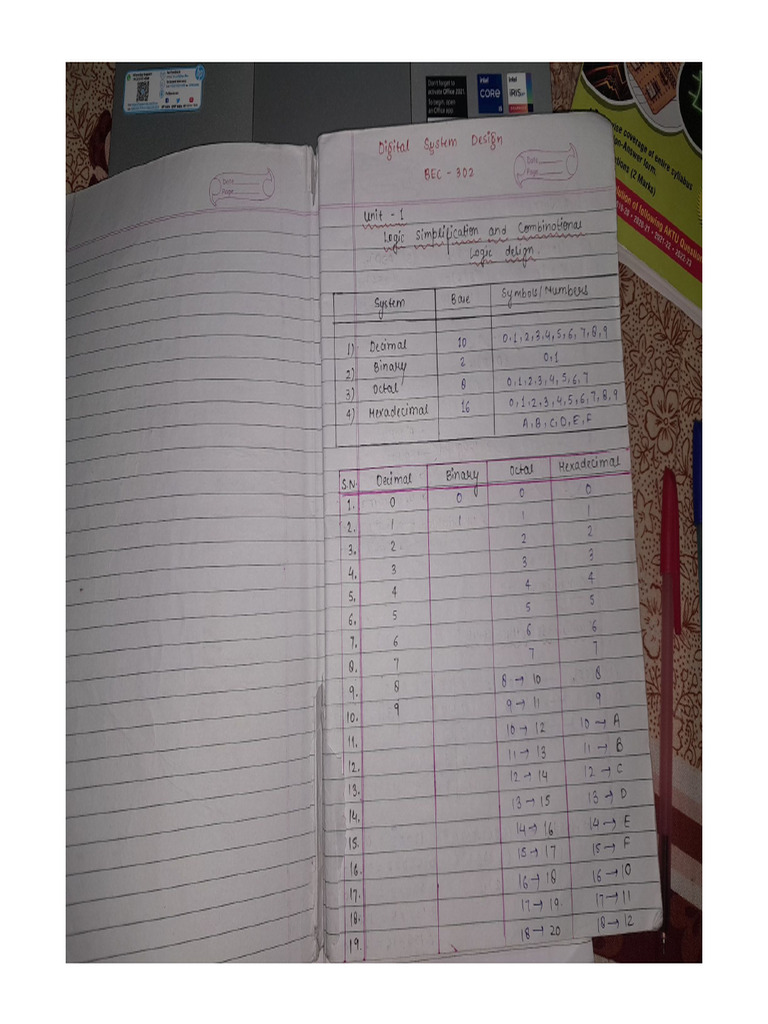 Don't forget to
activate Office 2021.
To begin, open
an Office app
intel
CORE
intel
IRIS
ise coverage of entire syllabus
on-Answer form
tions (2 Marks)
lution of following AKTU Question
2019-20 • 2020-21 • 2021-22 • 2022-23
Date
Page
Date
Page
Digital System Design
BEC - 302
Unit - 1
Logic Simplification and Combinational
Logic design.
System Base Symbols/Numbers
1) Decimal 10 0,1,2,3,4,5,6,7,8,9
2) Binary 2 0,1
3) Octal 8 0,1,2,3,4,5,6,7
4) Hexadecimal 16 0,1,2,3,4,5,6,7,8,9
A,B,C,D,E,F
S.N. Decimal Binary Octal Hexadecimal
1. 0 0 0 0
2. 1 1 1 1
3. 2 2 2
4. 3 3 3
5. 4 4 4
6. 5 5 5
7. 6 6 6
8. 7 7 7
9. 8 8→10 8
10. 9 9→11 9
11. 10→12 10→A
12. 11→13 11→B
13. 12→14 12→C
14. 13→15 13→D
15. 14→16 14→E
16. 15→17 15→F
17. 16→18 16→10
18. 17→19. 17→11
19. 18→20 18→12